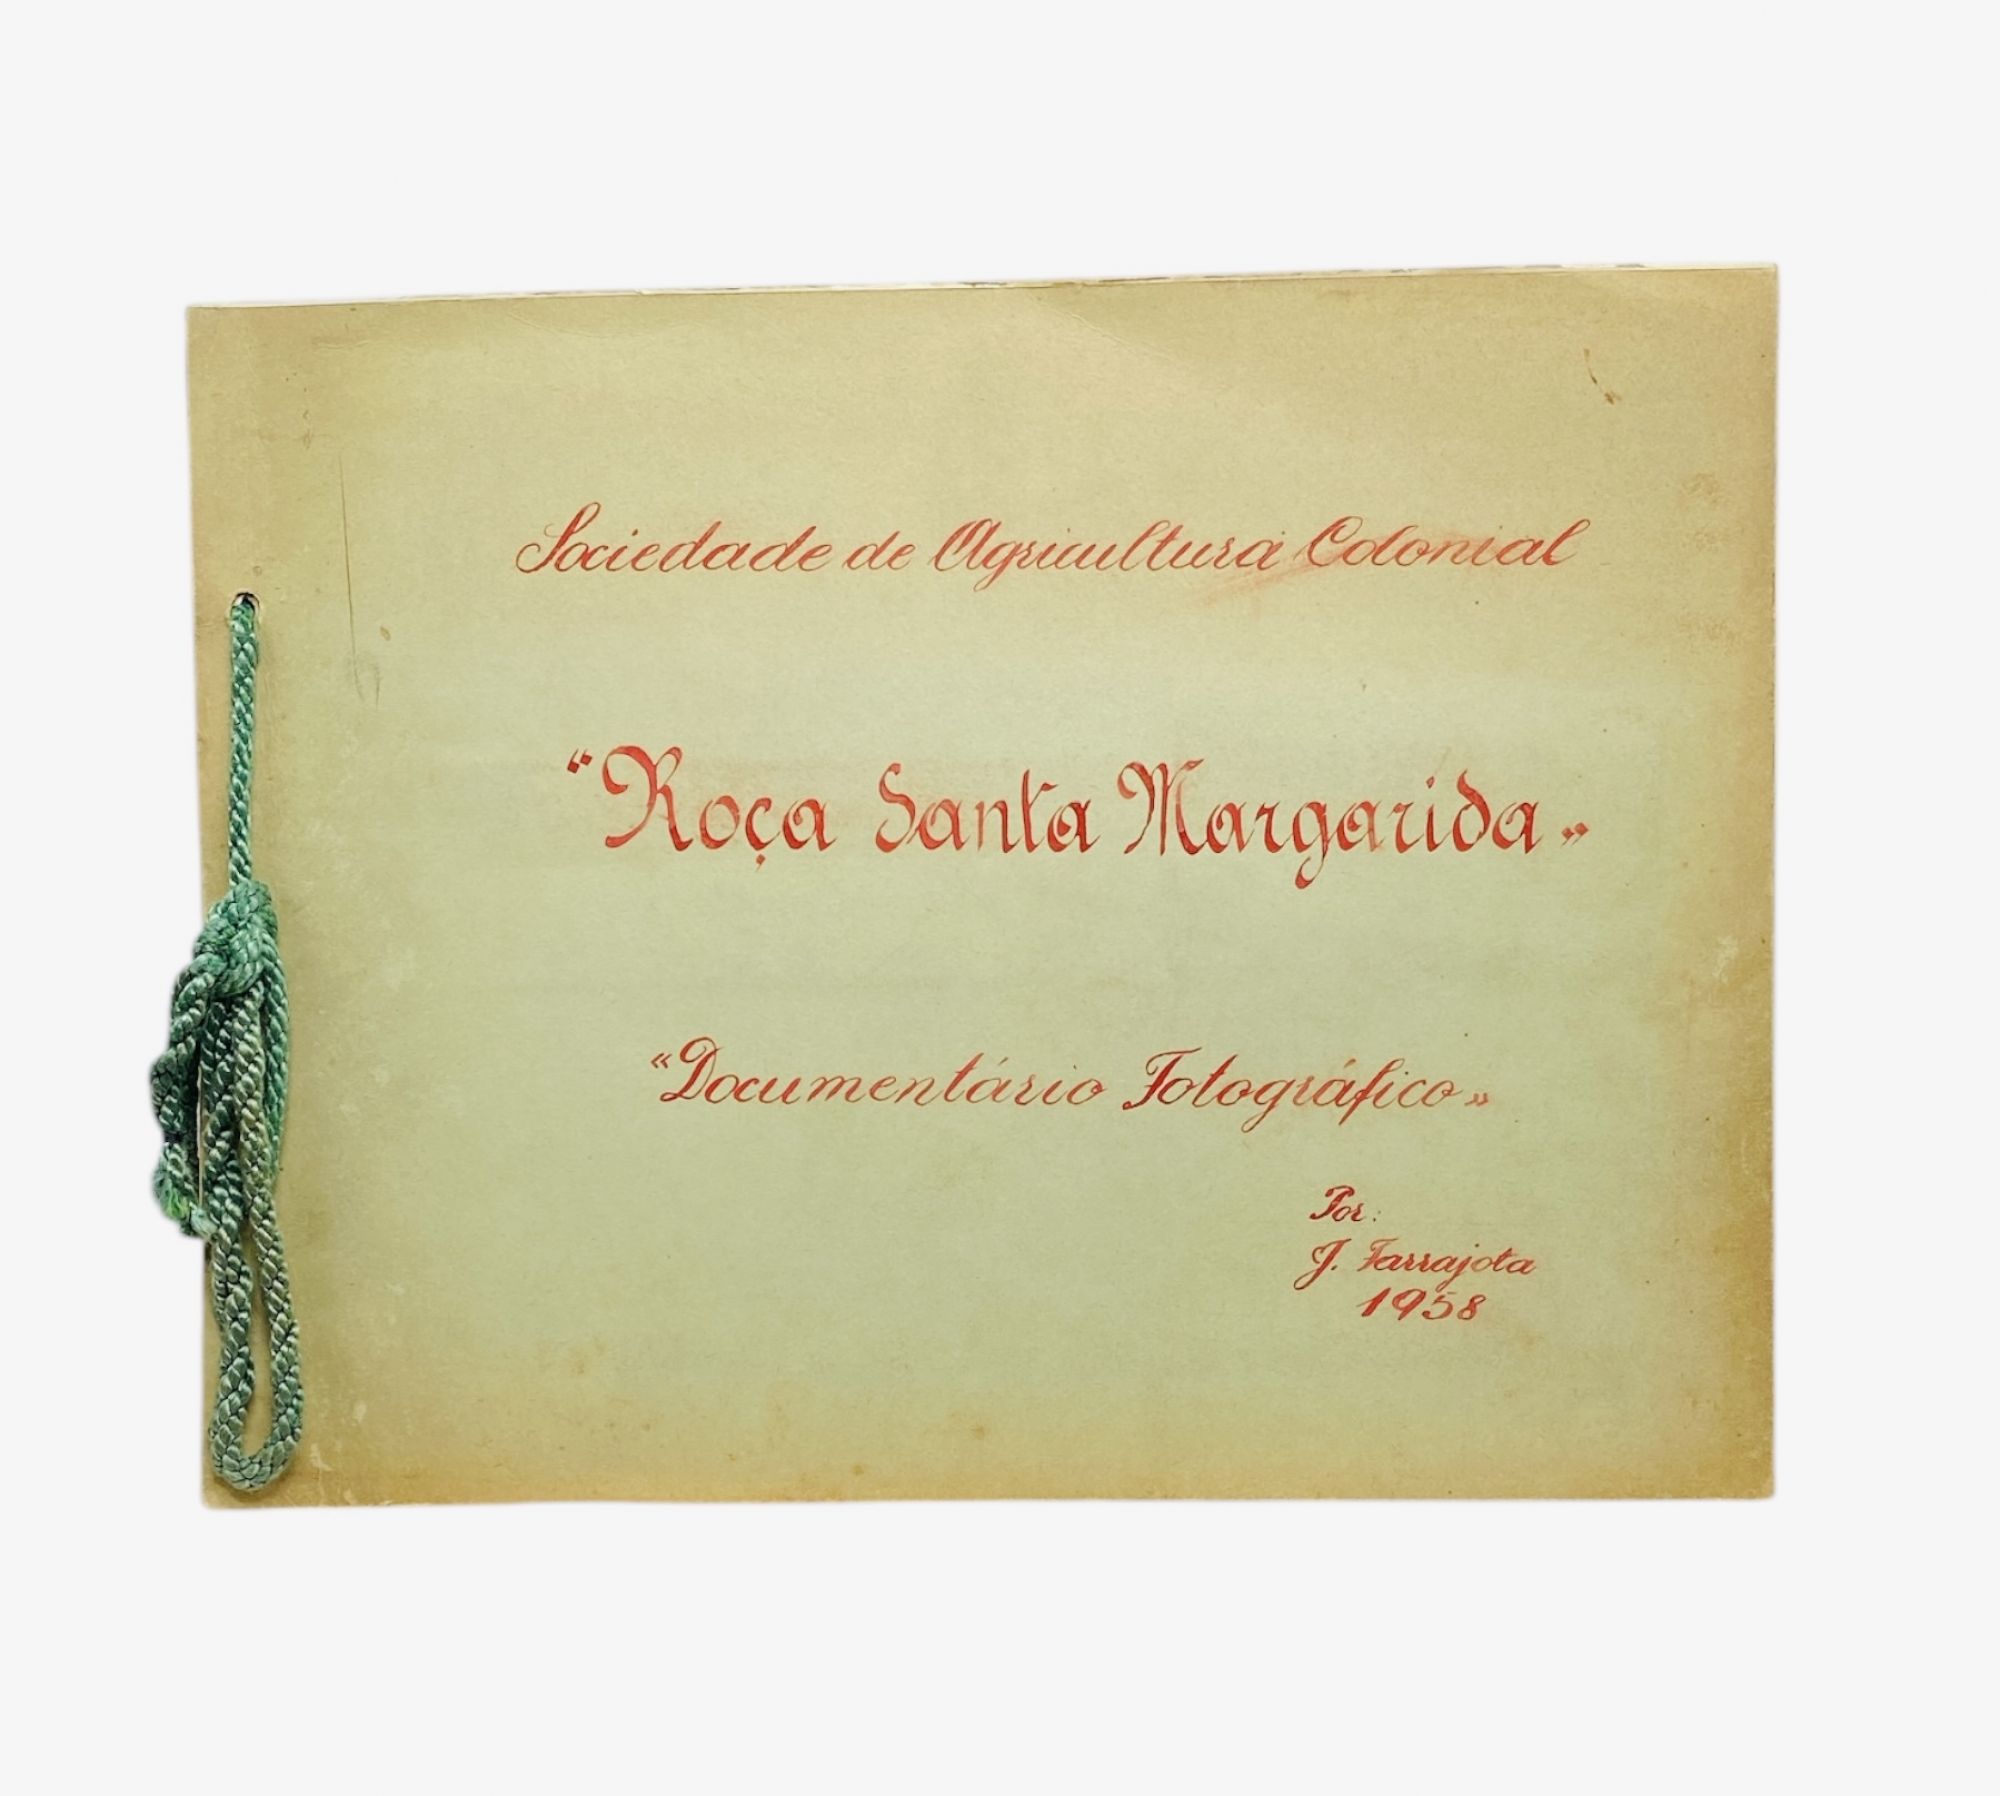 Sociedade de Agricultura Colonial
"Roça Santa Margarida"
"Documentário Fotográfico"
Por:
J. Farrajota
1958